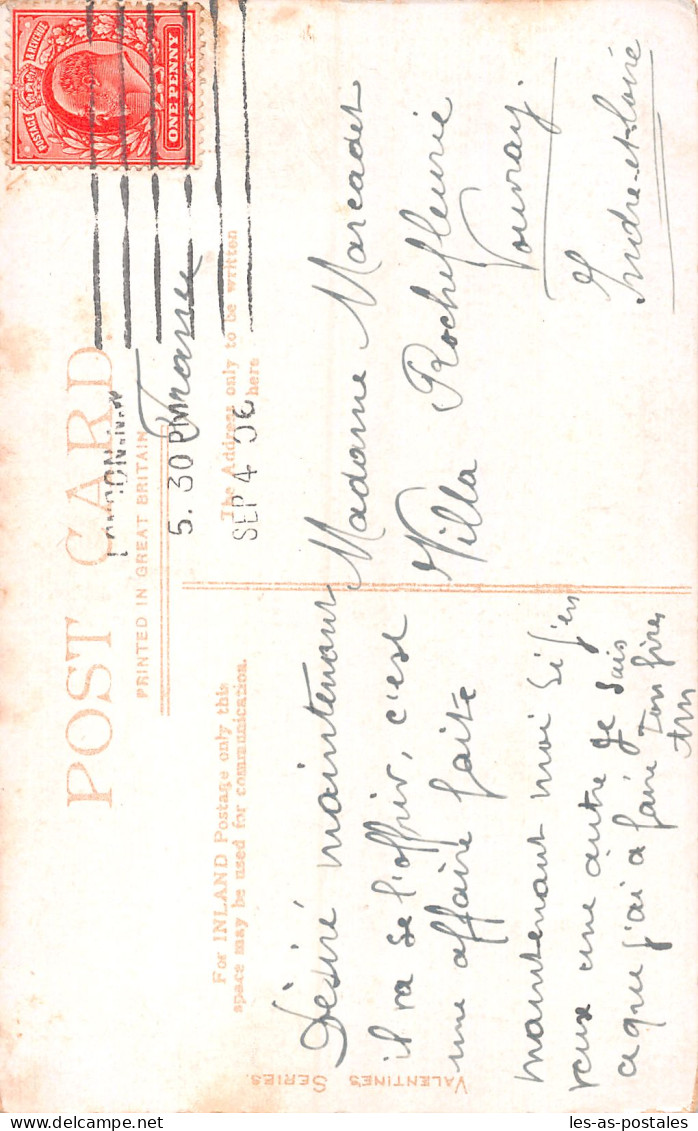 POST CARD.
PRINTED IN GREAT BRITAIN
For INLAND Postage only this
space may be used for communication.
The Address only to be written
here
POSTAGE & REVENUE
ONE PENNY
LONDON.N.W
5.30 PM
SEP 4 06
France
Madame Marcadet
Villa Rochefleurie
Vouvray.
Indre-et-Loire
Désiré maintenant
il va se l'offrir, c'est
une affaire faite
maintenant moi si j'en
veux une autre je sais
ce que j'ai à faire
VALENTINE'S SERIES.
les-as-postales